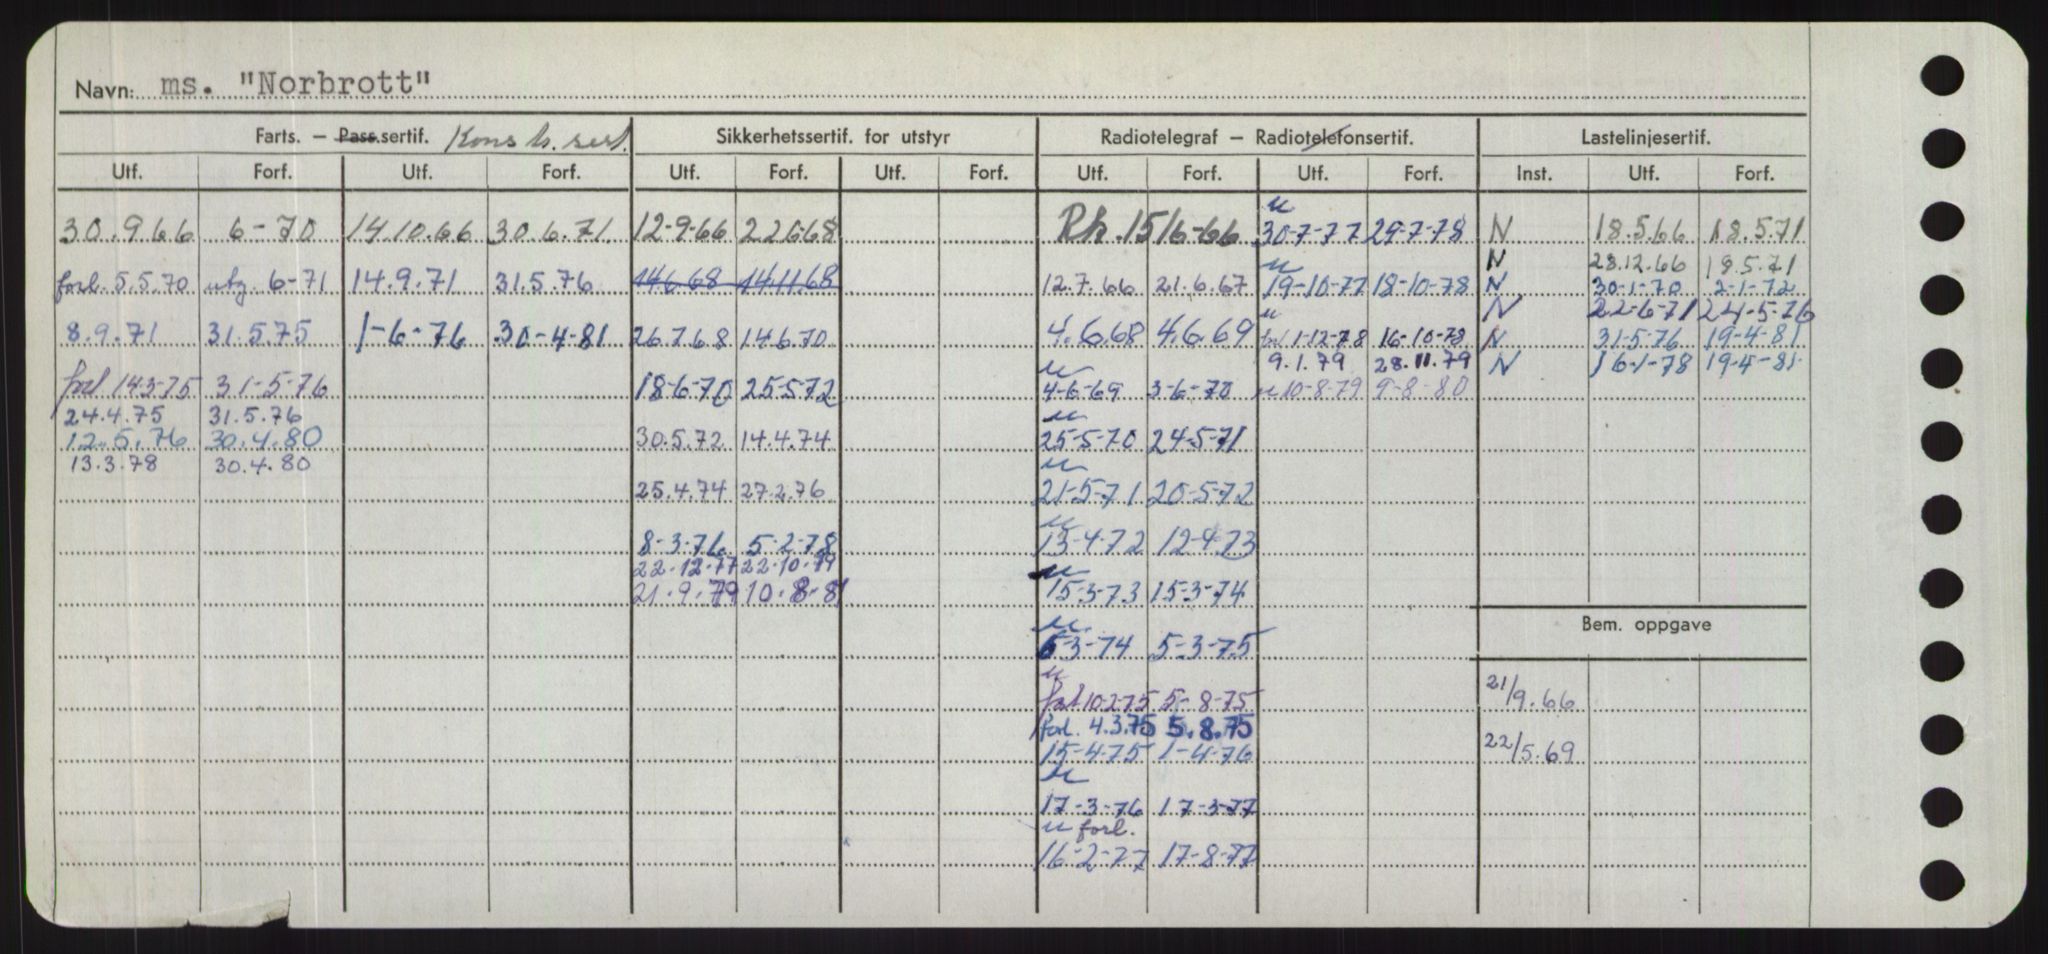 Navn: ms. "Norbrott"
Farts. — Pass.sertif. Konstr. sert. Sikkerhetssertif. for utstyr Radiotelegraf — Radiotelefonsertif. Lastelinjesertif.
Utf. Forf. Utf. Forf. Utf. Forf. Utf. Forf. Utf. Forf. Utf. Forf. Inst. Utf. Forf.
30.9.66 6-70 14.10.66 30.6.71. 12-9-66 22.6.68 Rh. 15/6-66 30-7-77 29-7-78 N 18.5.66 18.5.71
N 28.12.66 18.5.71
forl. 5.5.70 6-71 14.9.71 31.5.76 14.6.68 14.11.68 12.7.66 21.6.67 19-10-77 18-10-78 N 30-1-70 2-1-72
N 22-6-71 24-5-76
8.9.71 31.5.75 1-6-76 30-4-81 26.7.68 14.6.70 4.6.68 4.6.69 1-12-78 16-10-78 N 31-5-76 19-4-81
9.1.79 28.11.79 N 16-1-78 19-4-81
forl 14.3.75 31-5-76 18-6-70 25.5.72 4-6-69 3-6-70 10-8-79 9-8-80
24.4.75 31.5.76
12.5.76 30.4.80 30.5.72 14.4.74 25-5-70 24-5-71
13.3.78 30.4.80
25.4.74 27.2.76 21-5-71 20-5-72
8-3-76 5-2-78 13-4-72 12-4-73
22.12.77 22.10.79
21.9.79 10.8-81 15-3-73 15-3-74
Bem. oppgave
6-3-74 5-3-75
forl 10-2-75 5-8-75 21/9.66
forl. 4.3.75 5.8.75
15-4-75 1-4-76 22/5.69
17-3-76 17-3-77
forl.
16-2-77 17-8-77